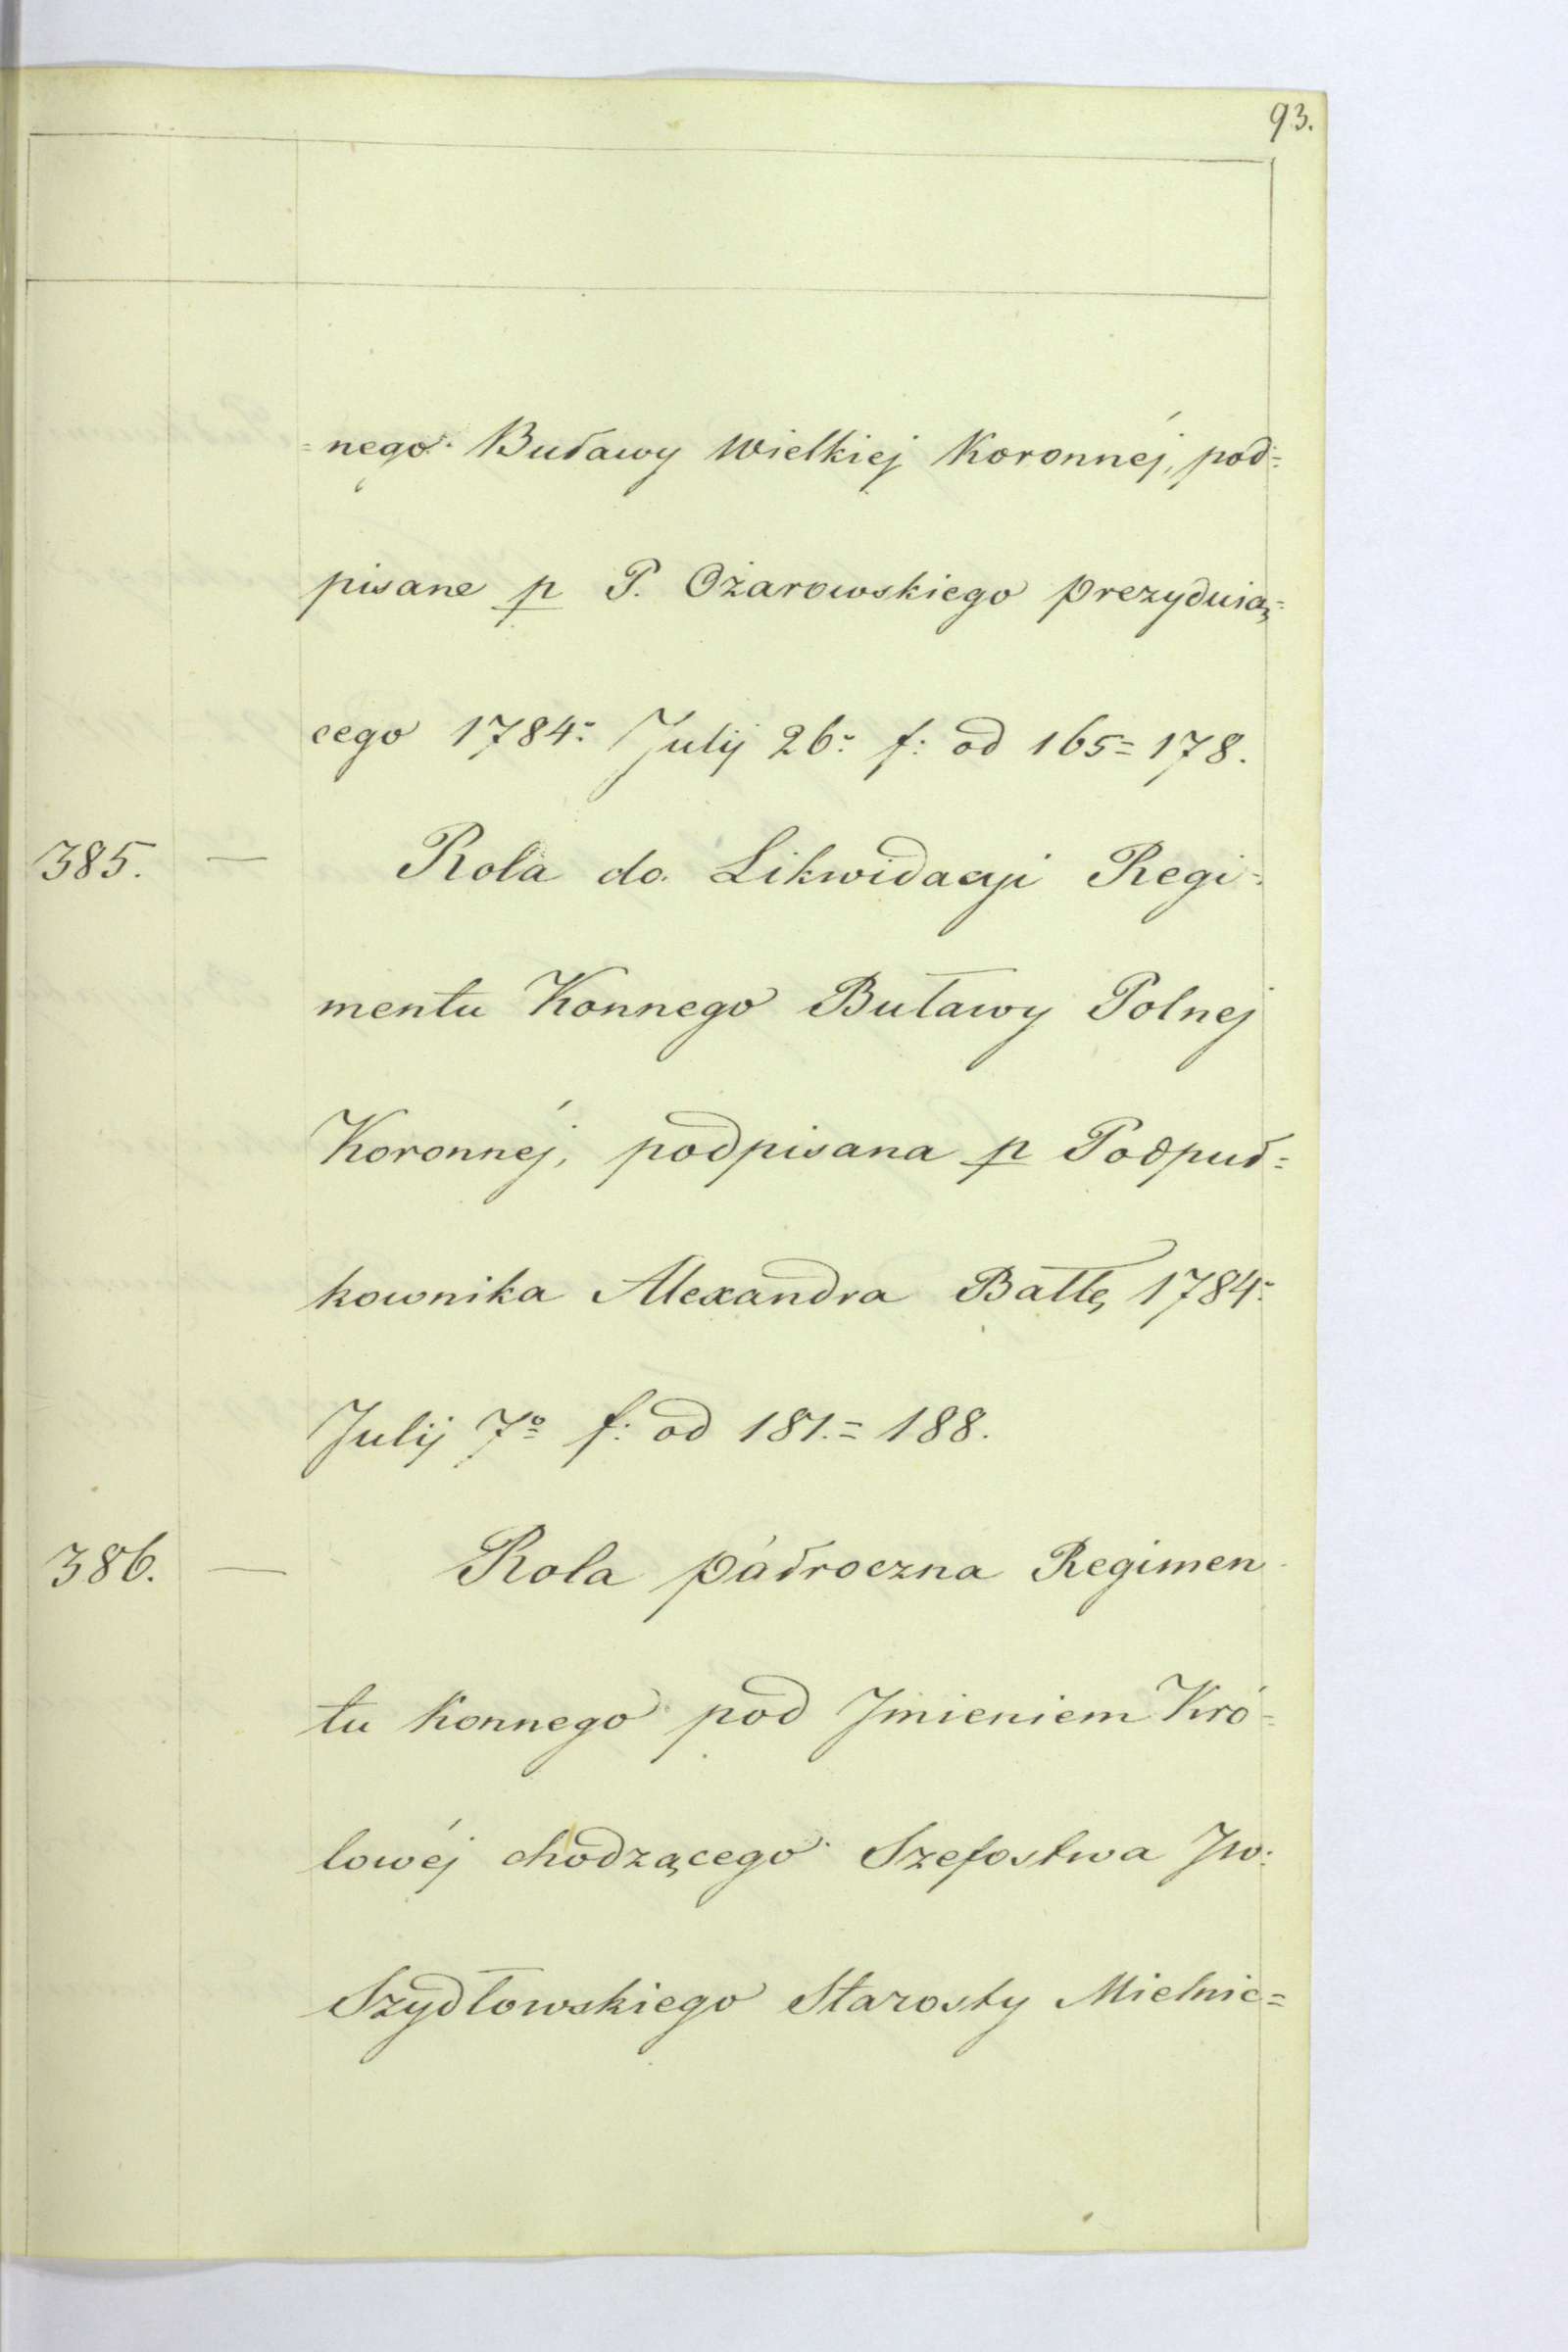 93.
=nego Buławy Wielkiej Koronnéj, pod=
pisane p P. Ożarowskiego Prezyduią=
cego 1784: Julij 26: f: od 165=178.
385. — Rola do Likwidacyi Regi=
mentu Konnego Buławy Polnej
Koronnéj, podpisana p Podpuł=
kownika Alexandra Battę 1784:
Julij 7º f: od 181.=188.
386. — Rola półroczna Regimen
tu Konnego pod Jmieniem Kró=
lowéj chodzącego Szefostwa Jw:
Szydłowskiego Starosty Mielnic=